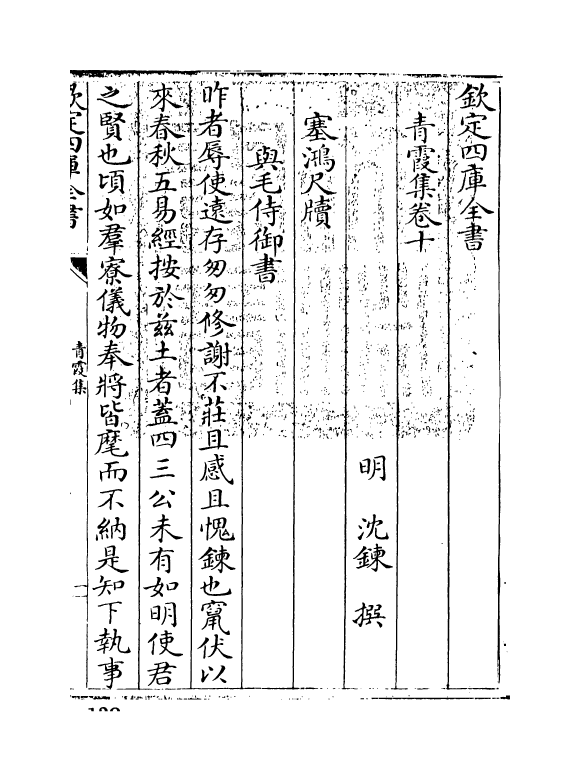 欽定四庫全書
青霞集卷十
明 沈鍊 撰
塞鴻尺牘
與毛侍御書
昨者辱使遠存匆匆修謝不莊且感且愧鍊也竄伏以
來春秋五易經按於兹土者蓋四三公未有如明使君
之賢也頃如羣寮儀物奉將皆麾而不納是知下執事
欽定四庫全書
青霞集
一